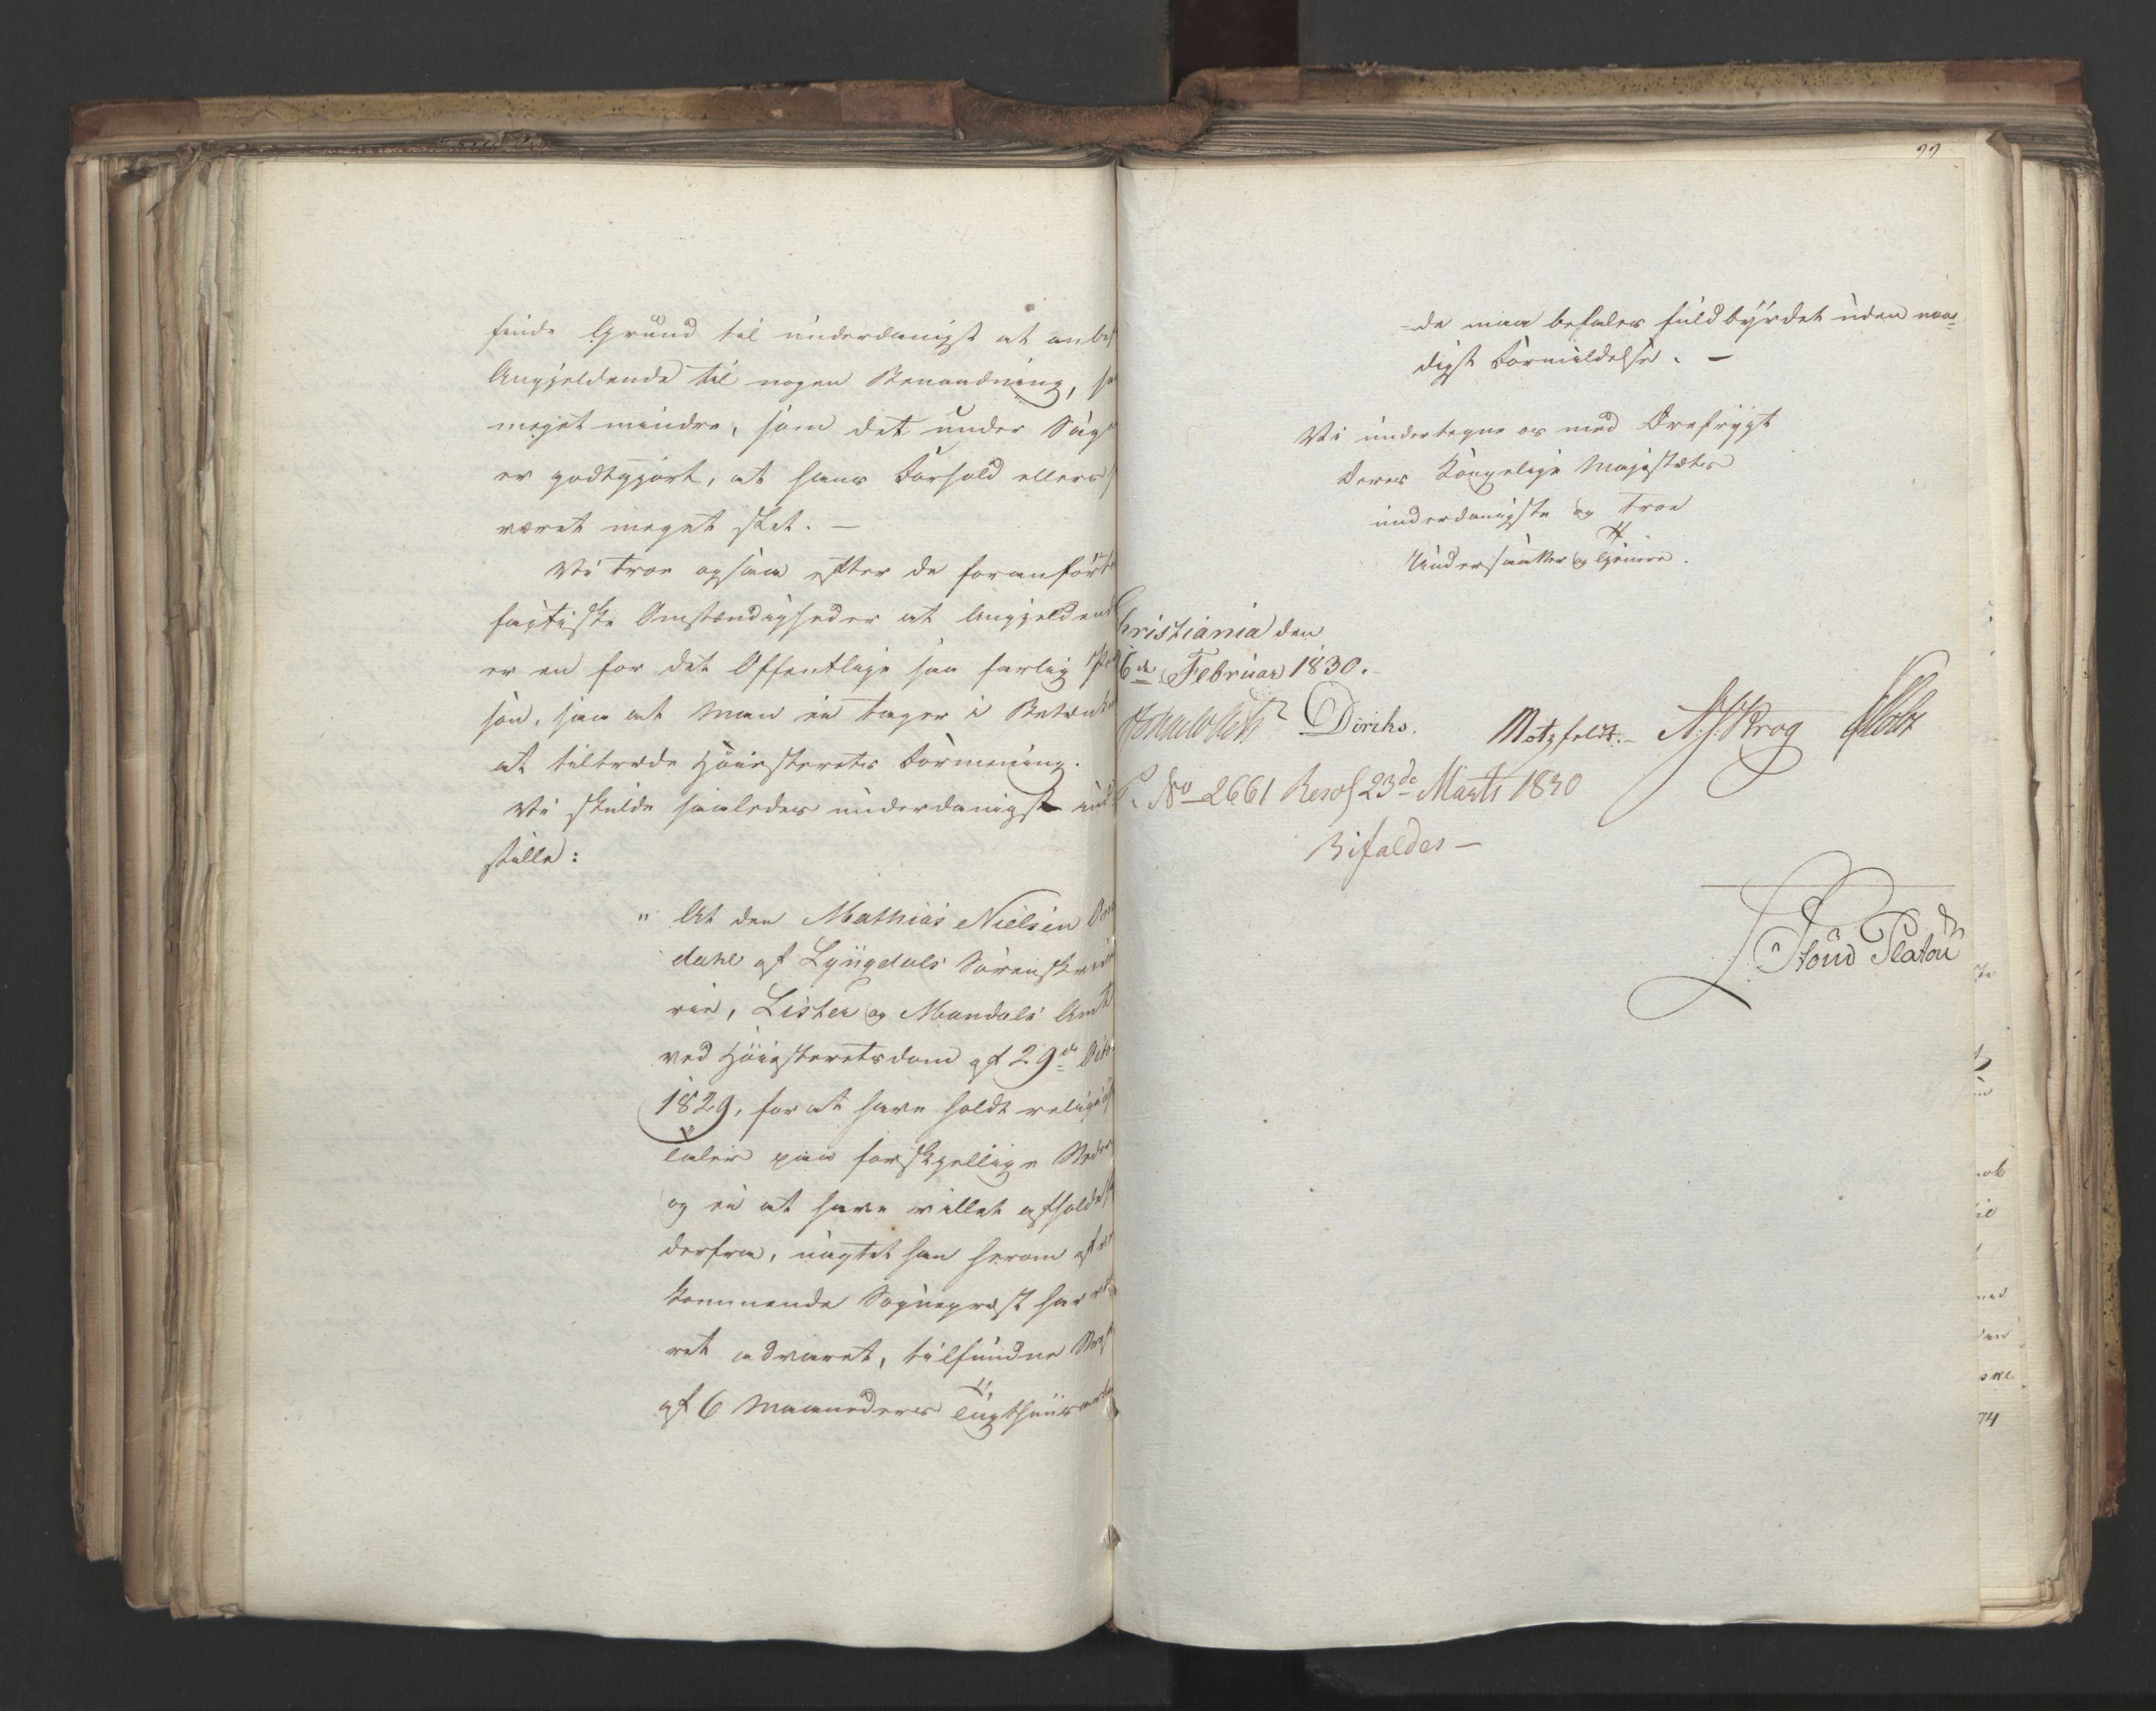 finde Grund til underdanigst at anbe
Angjeldende til nogen Benaadning, saa
meget mindre, som det under Sage
er godtgjort, at hans Forhold ellers
været meget slet. —
Vi troe ogsaa efter de foranførte
factiske Omstændigheder at Angjeldend
er en for det Offentlige saa farlig Per
son, saa at man ei tager i Betænk
at tiltræde Høiesterets Formening.
Vi skulde saaledes underdanigst ind
stille:
" At den Mathias Nielsen
dahl af Lyngdals Sørenskrive
rie, Lister og Mandals Amt
ved Høiesteretsdom af 29de
1829, for at have holdt religiøse
Taler paa forskjellige Steder
og ei at have villet afholde
derfra, uagtet han herom af ved
kommende Sognepræst har væ
ret advaret, tilfundne Straf
af 6 Maaneders Tugthuusarbei
99
-de maa befales fuldbyrdet uden naa-
digst Formildelse. —
Vi undertegne os med Ærefrygt
Deres Kongelige Majestæts
underdanigste og troe
Undersaatter og Tjenere.
Christiania den
6de Februar 1830.
Diriks. Motzfeldt. A. J. Krog Holst
No 2661 Resol 23de Marts 1830
Bifaldes —
Stoud Platou